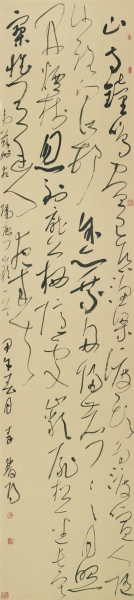 山寺鐘鳴晝已昏漁梁渡頭爭渡喧人隨
沙路向江村余亦乘舟歸鹿門鹿門月照
開煙樹忽到龐公棲隱處巖扉松徑長寂
寥惟有幽人自來去
歸鹿門山歌
甲午春月李